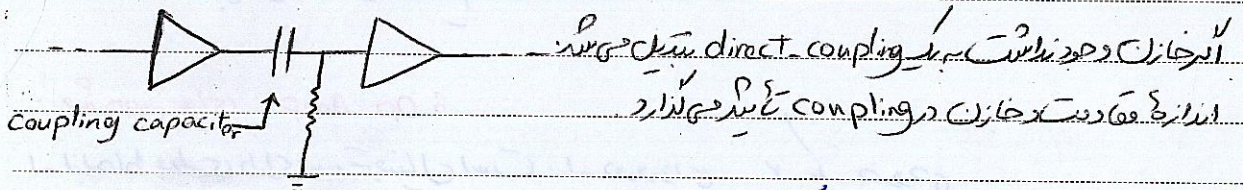 اگر خازن وجود نداشت به یک direct-coupling تبدیل می‌شد.
اندازهٔ مقاومت و خازن در coupling تأثیر می‌گذارد.
coupling capacitor